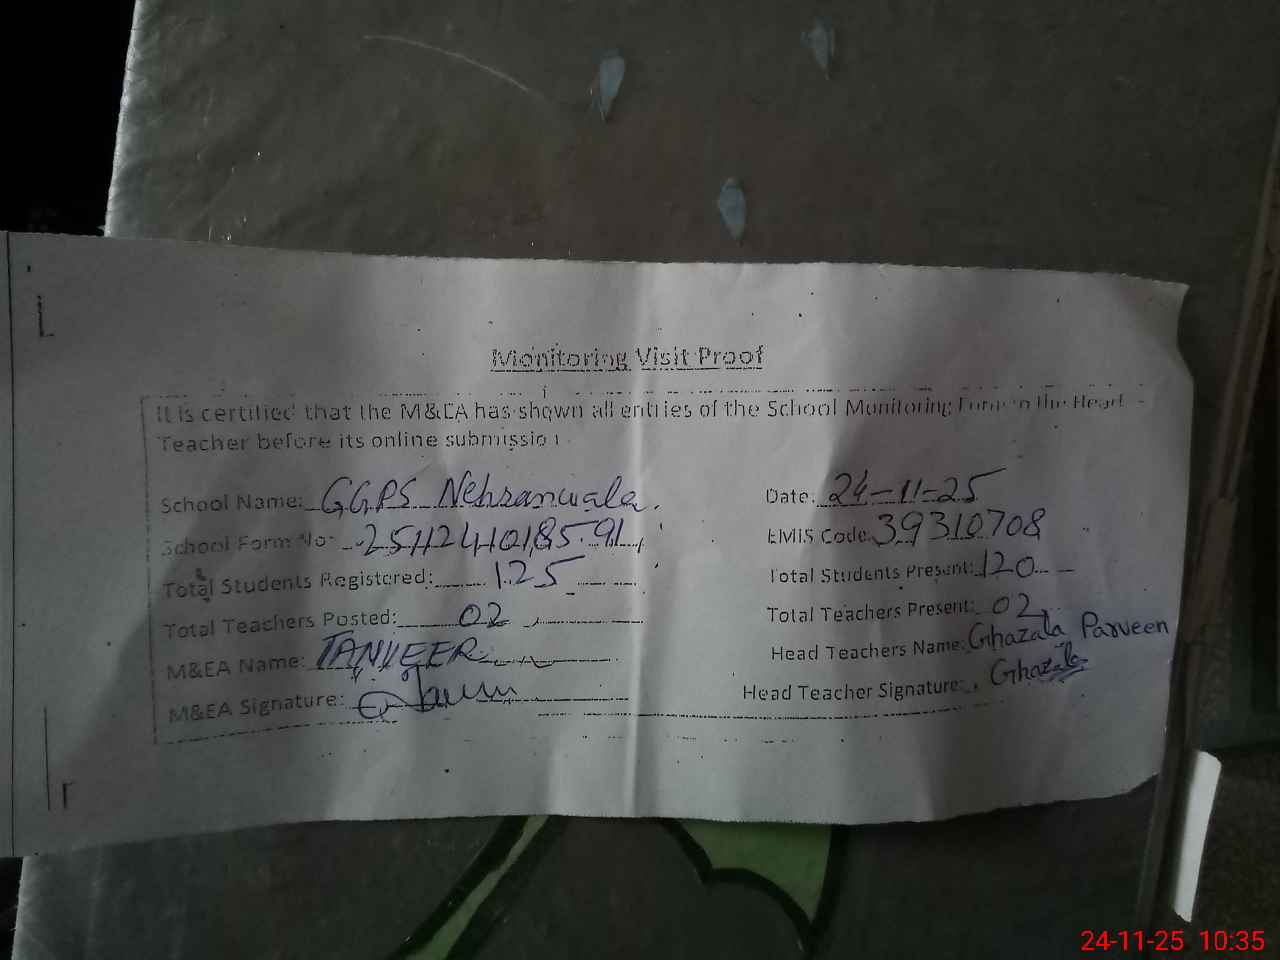 Monitoring Visit Proof
It is certified that the M&EA has shown all entries of the School Monitoring Form to the Head
Teacher before its online submission
School Name: GGPS Nehranwala. Date: 24-11-25
School Form No: EMIS Code: 39310708
Total Students Registered: 125 Total Students Present: 120
Total Teachers Posted: 02 Total Teachers Present: 02
M&EA Name: TANVEER Head Teachers Name: Ghazala Parveen
M&EA Signature: Head Teacher Signature: Ghazala
24-11-25 10:35